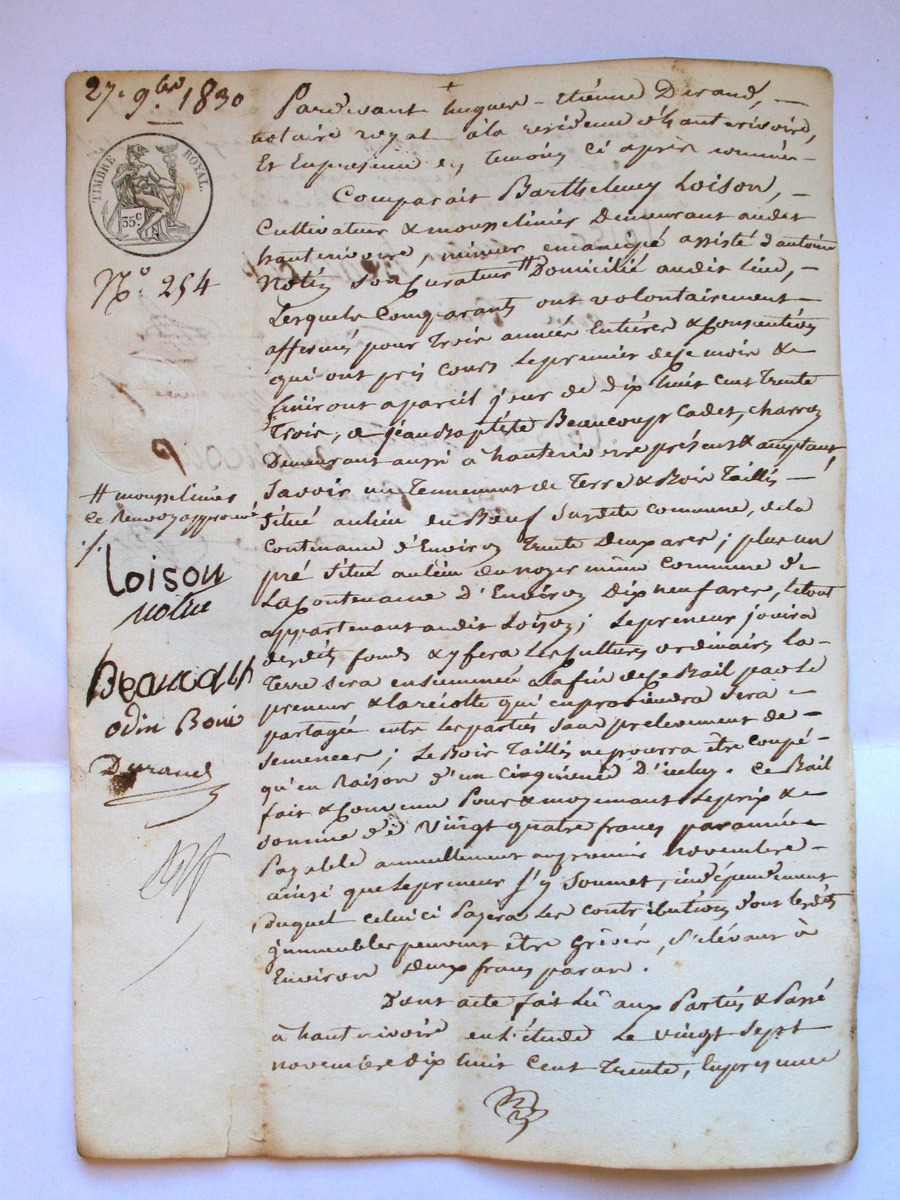 27. 9bre 1830
TIMBRE ROYAL.
35 c.
No. 254
Pardevant hugues-Etiénne Durand,
notaire royal à la residence d'hauterivoire,
Et En presence des Temoins Ci après nommés
Comparait Barthelemy Loison,
Cultivateur & mousselinier Demeurant audit
hauterivoire, mineur emancipé assisté d'antoine
Notin Son Curateur # Domicilié audit lieu,
Lesquels Comparants ont volontairement
affermés pour Trois années Entières & Consecutives
qui ont pris Cours Le premier de ce mois &
finiront a pareil jour de dix huit cent Trente
Trois, a jean Baptiste Beaucoup Cadet, charron
Demeurant aussi à hauterivoire présent & acceptant
Savoir un Tennement de Terre & Bois Taillis
Situé au lieu du Bœuf Susdite Commune, de la
Contenance d'Environ Trente Deux ares; plus un
pré Situé au lieu du noyer même Commune de
La Contenance d'Environ Dix neuf ares, le tout
appartenant audit Loison; Le preneur jouira
desdits fonds & y fera Les Cultures ordinaires la
Terre sera ensemencée a La fin de Ce Bail par Le
preneur & la récolte qui en proviendra Sera
partagée entre Les parties Sans prelevement de
Semences; Le Bois Taillis ne pourra être Coupé
qu'en Raison d'un Cinquieme D'icelui. Ce Bail
fait & Convenu Pour & moyennant Le prix &
Somme de Vingt quatre francs par année
Payable annuellement au premier novembre
ainsi que Le preneur s'y Soumet, indépendament
Duquel Celui ci Payera Les Contributions dont lesdits
immeubles peuvent être Grévés, S'elévant à
Environ deux francs par an.
Dont acte fait Lû aux Parties & Passé
à hauterivoire en L'étude Le vingt Sept
novembre dix huit Cent Trente, En presence
# mousselinier
Ce Renvoy approuvé
./.
Loison
notin
Beaucoup
odin
Durand